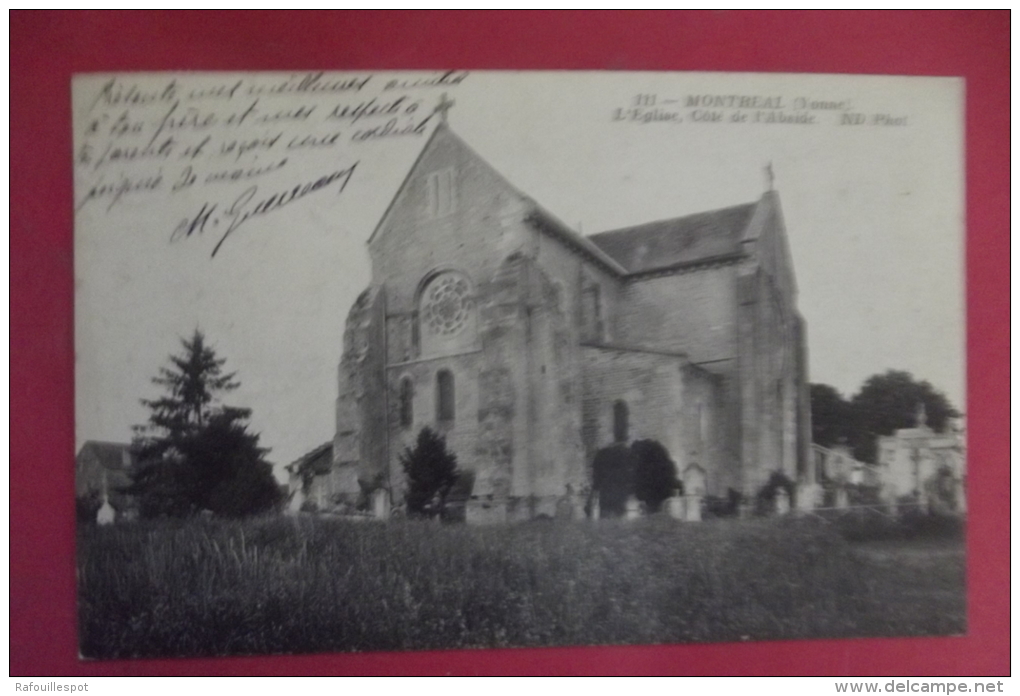 Présente mes meilleures amitiés
à ton père et mes respects à
parents et reçois une cordiale
poignée de mains
111 — MONTREAL (Yonne)
L'Eglise, Côté de l'Abside. ND Phot
Rafouillespot
www.delcampe.net